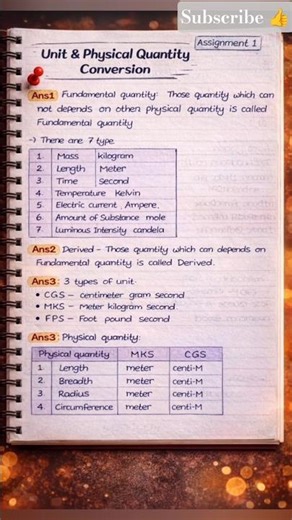 Subscribe 👍
Assignment 1
Unit & Physical Quantity
Conversion
Ans1 Fundamental quantity: Those quantity which can
not depends on other physical quantity is called
Fundamental quantity
→ There are 7 type
1. Mass kilogram
2. Length Meter
3. Time Second
4. Temperature Kelvin
5. Electric current Ampere.
6. Amount of Substance mole
7. Luminous Intensity candela
Ans2 Derived - Those quantity which can depends on
Fundamental quantity is called Derived.
Ans3: 3 types of unit:
• CGS - centimeter gram second
• MKS - Meter kilogram second.
• FPS - Foot pound second
Ans3: Physical quantity:
Physical quantity MKS CGS
1 Length meter centi-M
2. Breadth meter centi-M
3. Radius meter centi-M
4. Circumference meter centi-M